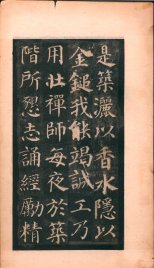 是築灑以香水隱以
金鎚我能竭誠工乃
用壯禪師每夜於築
階所懇志誦經勵精